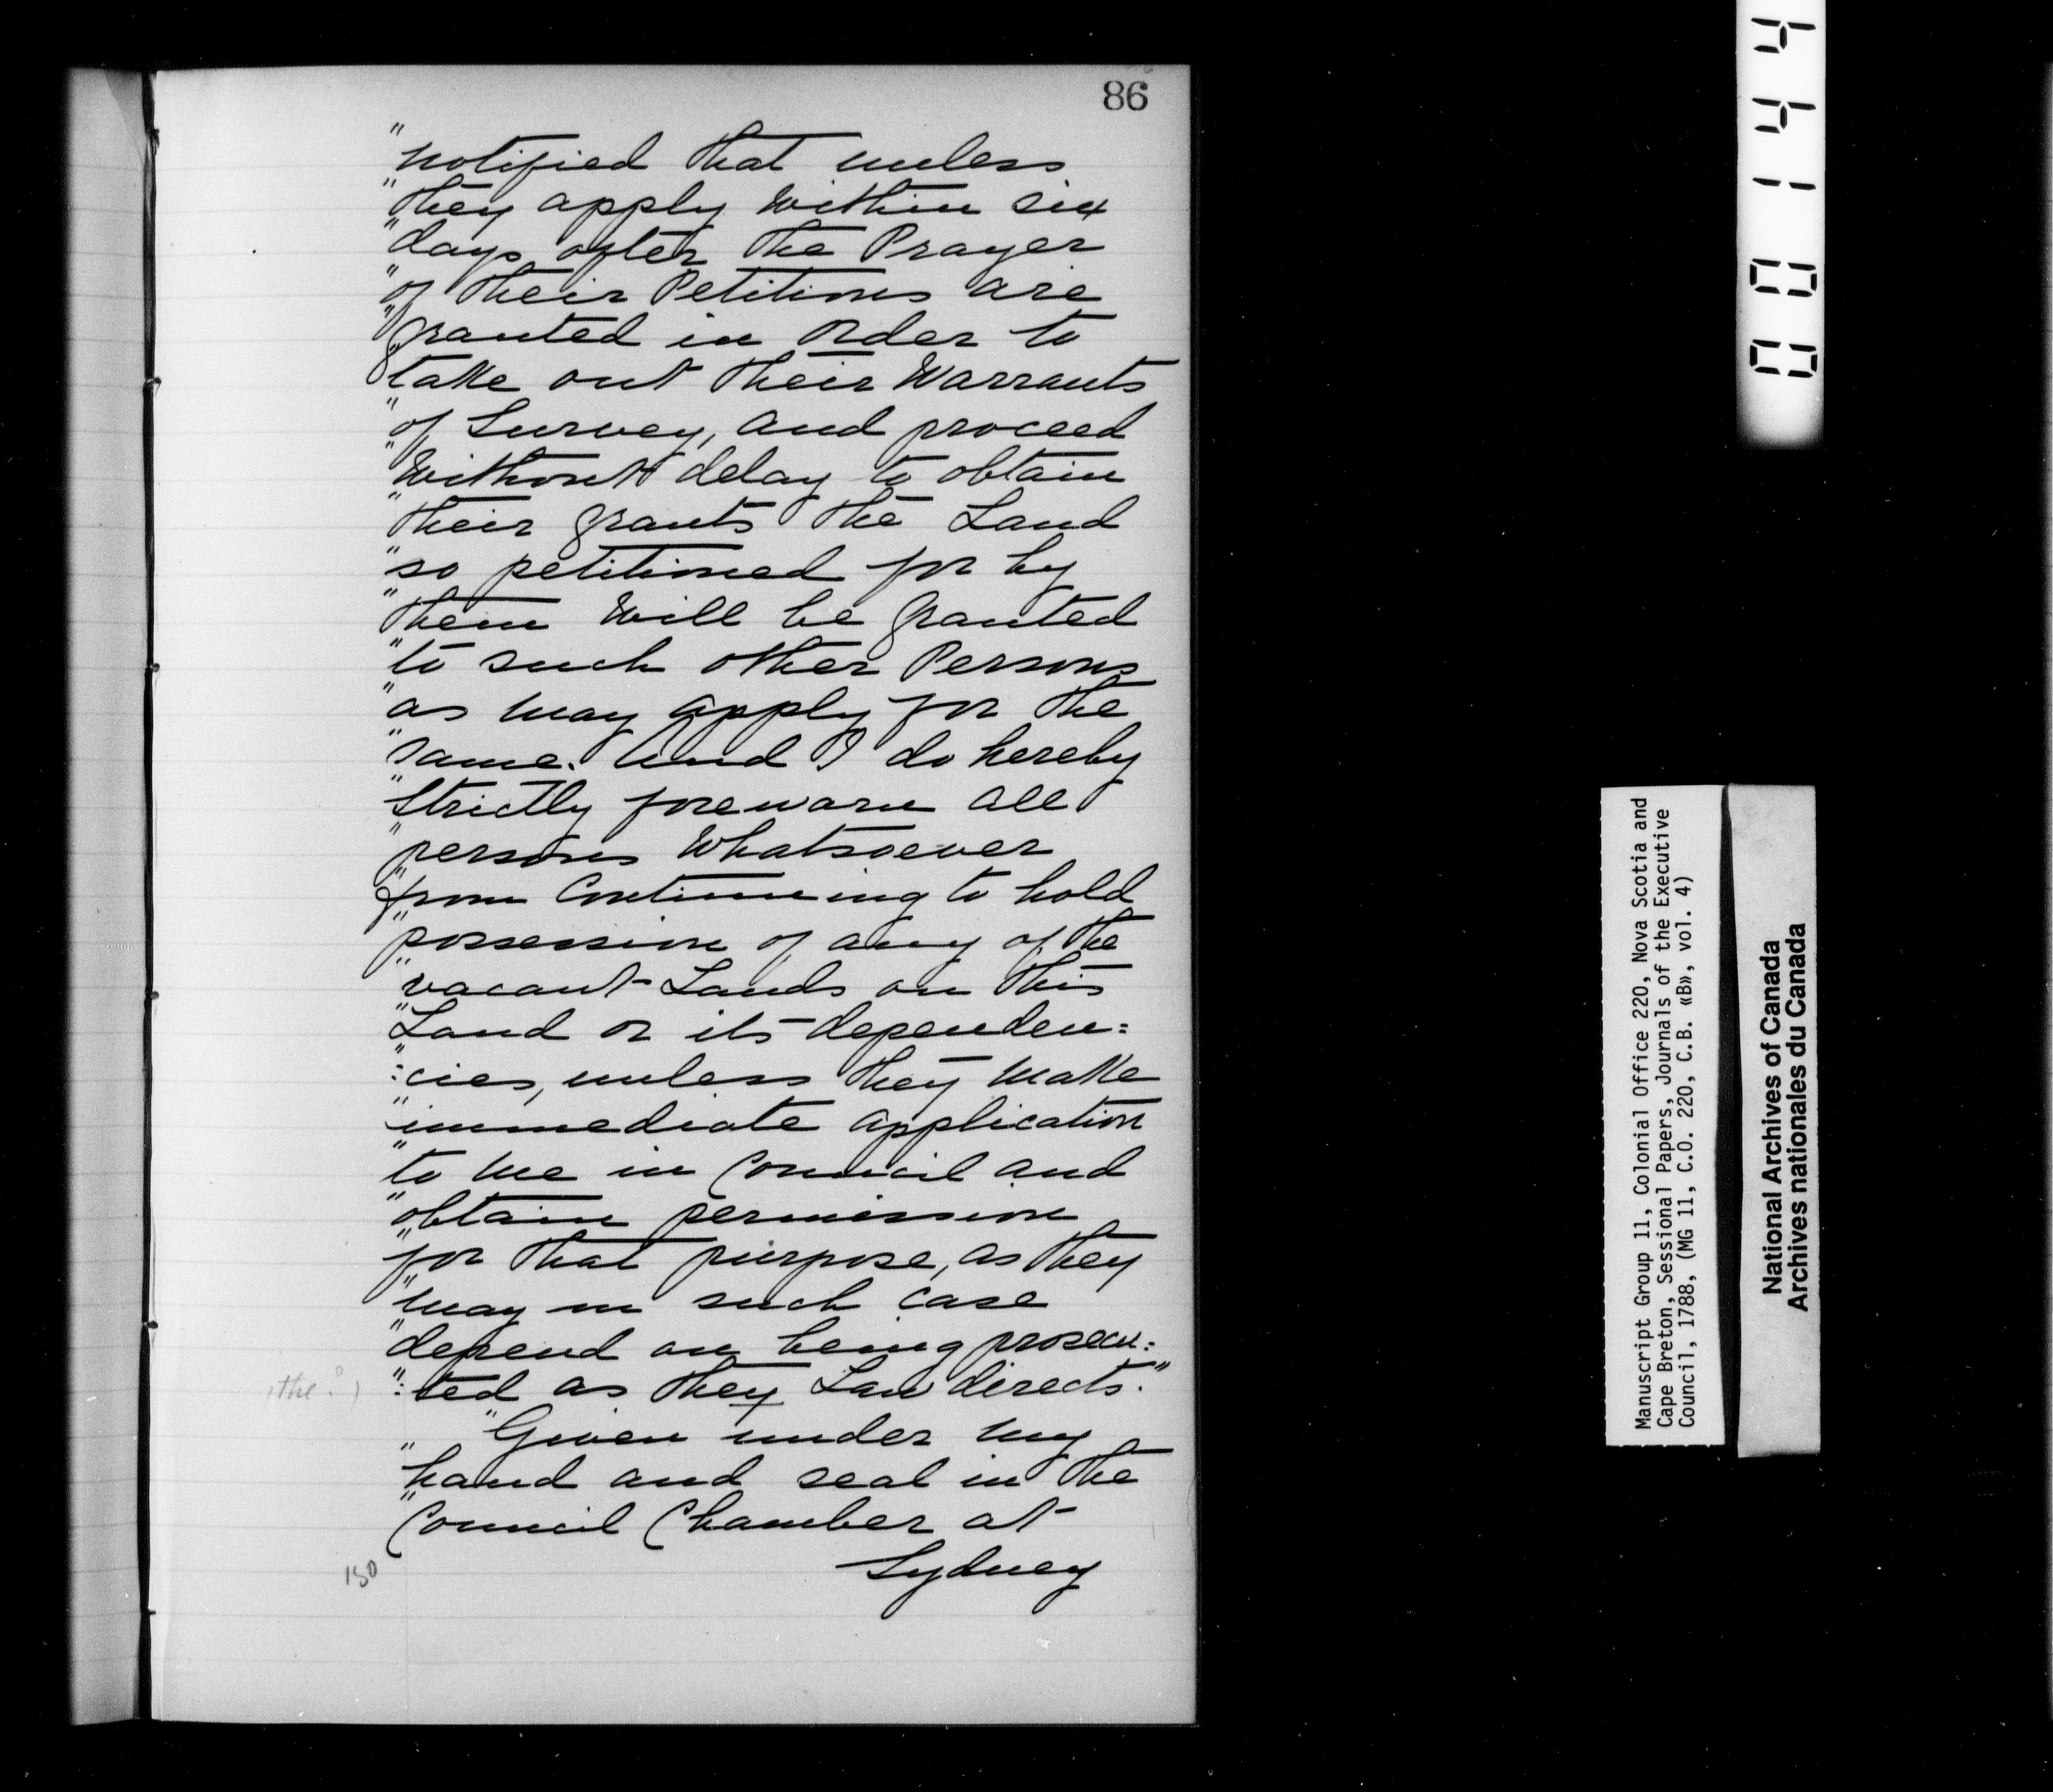 86
"notified that unless
"they apply within six
"days after the Prayer
"of their Petitions are
"granted in order to
"take out their Warrants
"of Survey, and proceed
"without delay to obtain
"their grants the Land
"so petitioned for by
"them will be granted
"to such other Persons
"as may apply for the
"same. And I do hereby
"Strictly forewarn all
"persons Whatsoever
"from Continueing to hold
"possession of any of the
"vacant Lands on this
"Land or its dependen:
":cies, unless they make
"immediate application
"to me in Council and
"obtain permission
"for that purpose, as they
"may in such case
"depend on being prosecu:
(the?) ":ted as they Law directs."
"Given under my
"hand and seal in the
"Council Chamber at
150 Sydney
00144
Manuscript Group 11, Colonial Office 220, Nova Scotia and
Cape Breton, Sessional Papers, Journals of the Executive
Council, 1788, (MG 11, C.O. 220, C.B. «B», vol. 4)
National Archives of Canada
Archives nationales du Canada